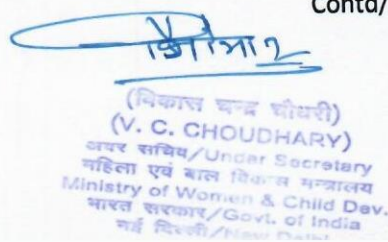 Contd/
(विकास चन्द्र चौधरी)
(V. C. CHOUDHARY)
अवर सचिव/Under Secretary
महिला एवं बाल विकास मन्त्रालय
Ministry of Women & Child Dev.
भारत सरकार/Govt. of India
नई दिल्ली/New Delhi